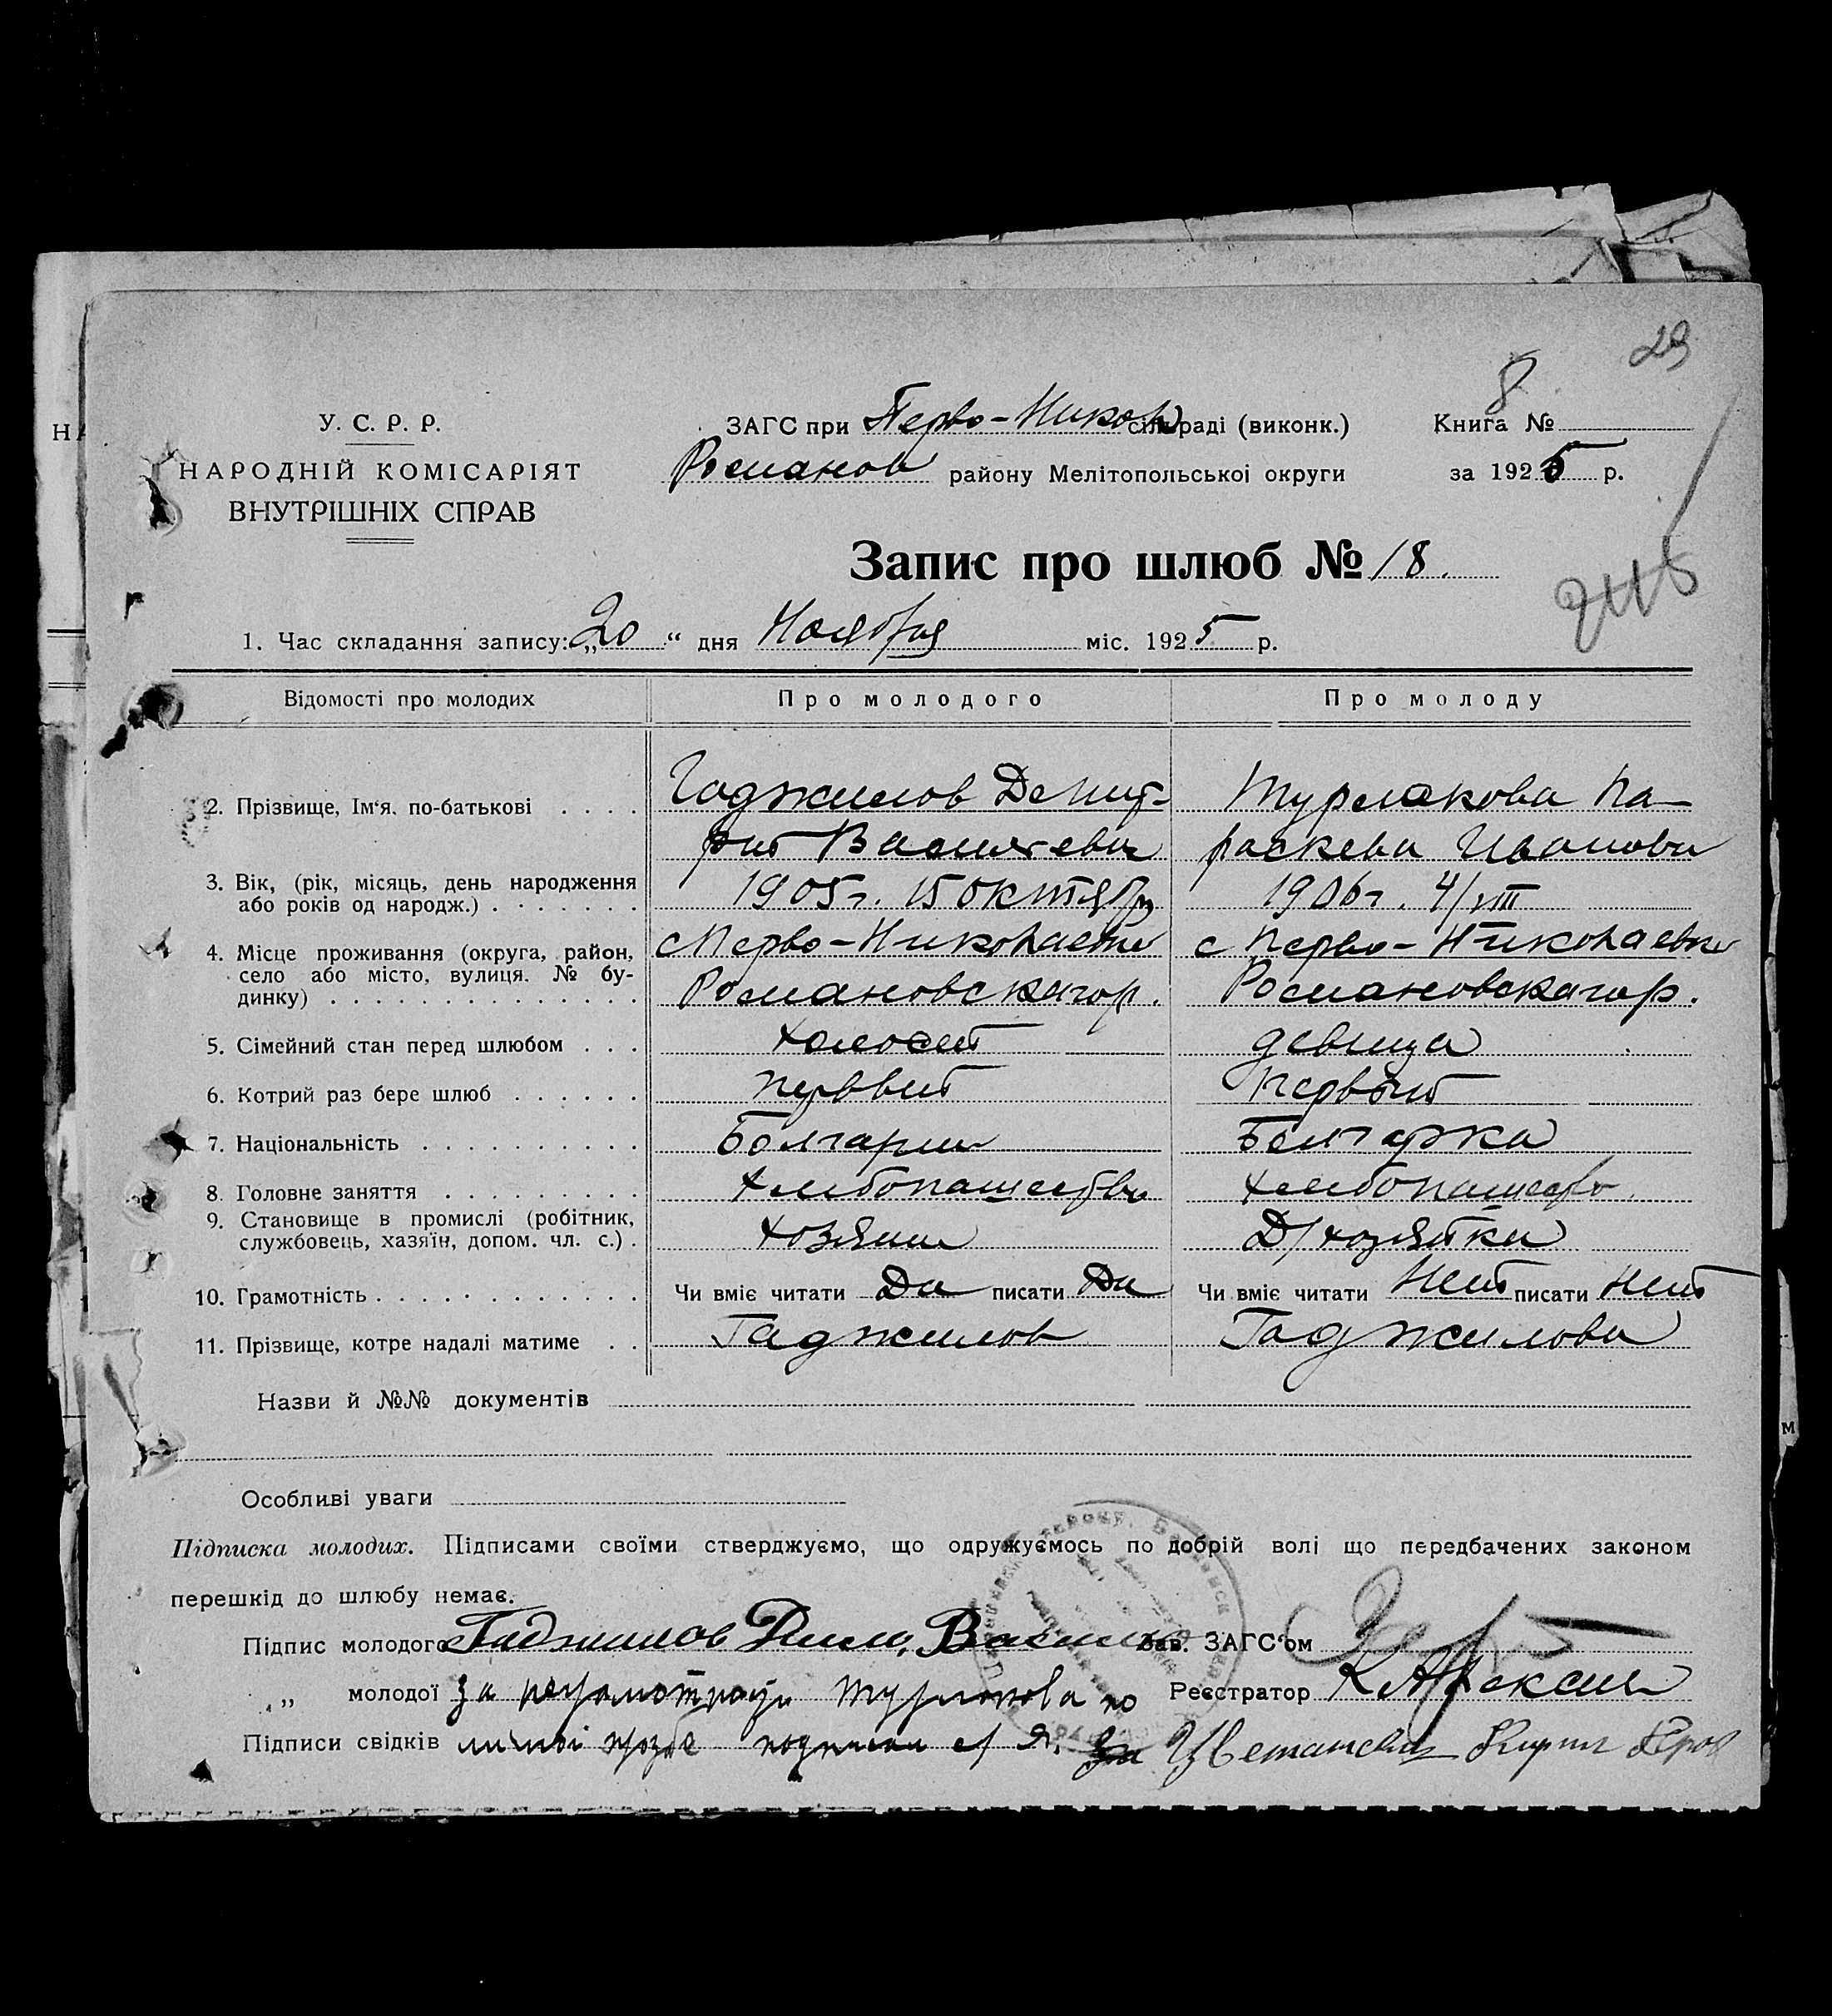 29
8
У. С. Р. Р.
ЗАГС при Перво-Никол сіль раді (виконк.) Книга №
НАРОДНІЙ КОМІСАРІЯТ
Романов району Мелітопольської округи за 1925 р.
ВНУТРІШНІХ СПРАВ
Запис про шлюб № 18.
1. Час складання запису: „20“ дня Ноября міс. 1925 р.
Відомості про молодих Про молодого Про молоду
2. Прізвище, Ім'я, по-батькові . . . . Гаджилов Дмит- Турлакова Па-
рий Васильевич раскева Иванова
3. Вік, (рік, місяць, день народження 1905г. 15 октябр 1906г. 4/VIII
або років од народж.) . . . . . . .
4. Місце проживання (округа, район, с Перво-Николаевка с Перво-Николаевка
село або місто, вулиця. № бу- Романовскагор. Романовскагор.
динку) . . . . . . . . . . . . . .
5. Сімейний стан перед шлюбом . . . холостой девица
6. Котрий раз бере шлюб . . . . . . первый Первый
7. Національність . . . . . . . . . . Болгарин Болгарка
8. Головне заняття . . . . . . . . . хлебопашество хлебопашество
9. Становище в промислі (робітник, хозяин Д/хозяйка
службовець, хазяїн, допом. чл. с.) .
10. Грамотність . . . . . . . . . . . . Чи вміє читати Да писати Да Чи вміє читати Нет писати Нет
11. Прізвище, котре надалі матиме . . Гаджилов Гаджилова
Назви й №№ документів
Особливі уваги
Підписка молодих. Підписами своїми стверджуємо, що одружуємось по добрій волі що передбачених законом
перешкід до шлюбу немає.
Підпис молодого Гаджилов Дим. Васил Зав. ЗАГС'ом
„ молодої за неграмотную Турлакова по Реєстратор
Підписи свідків личной прозбе